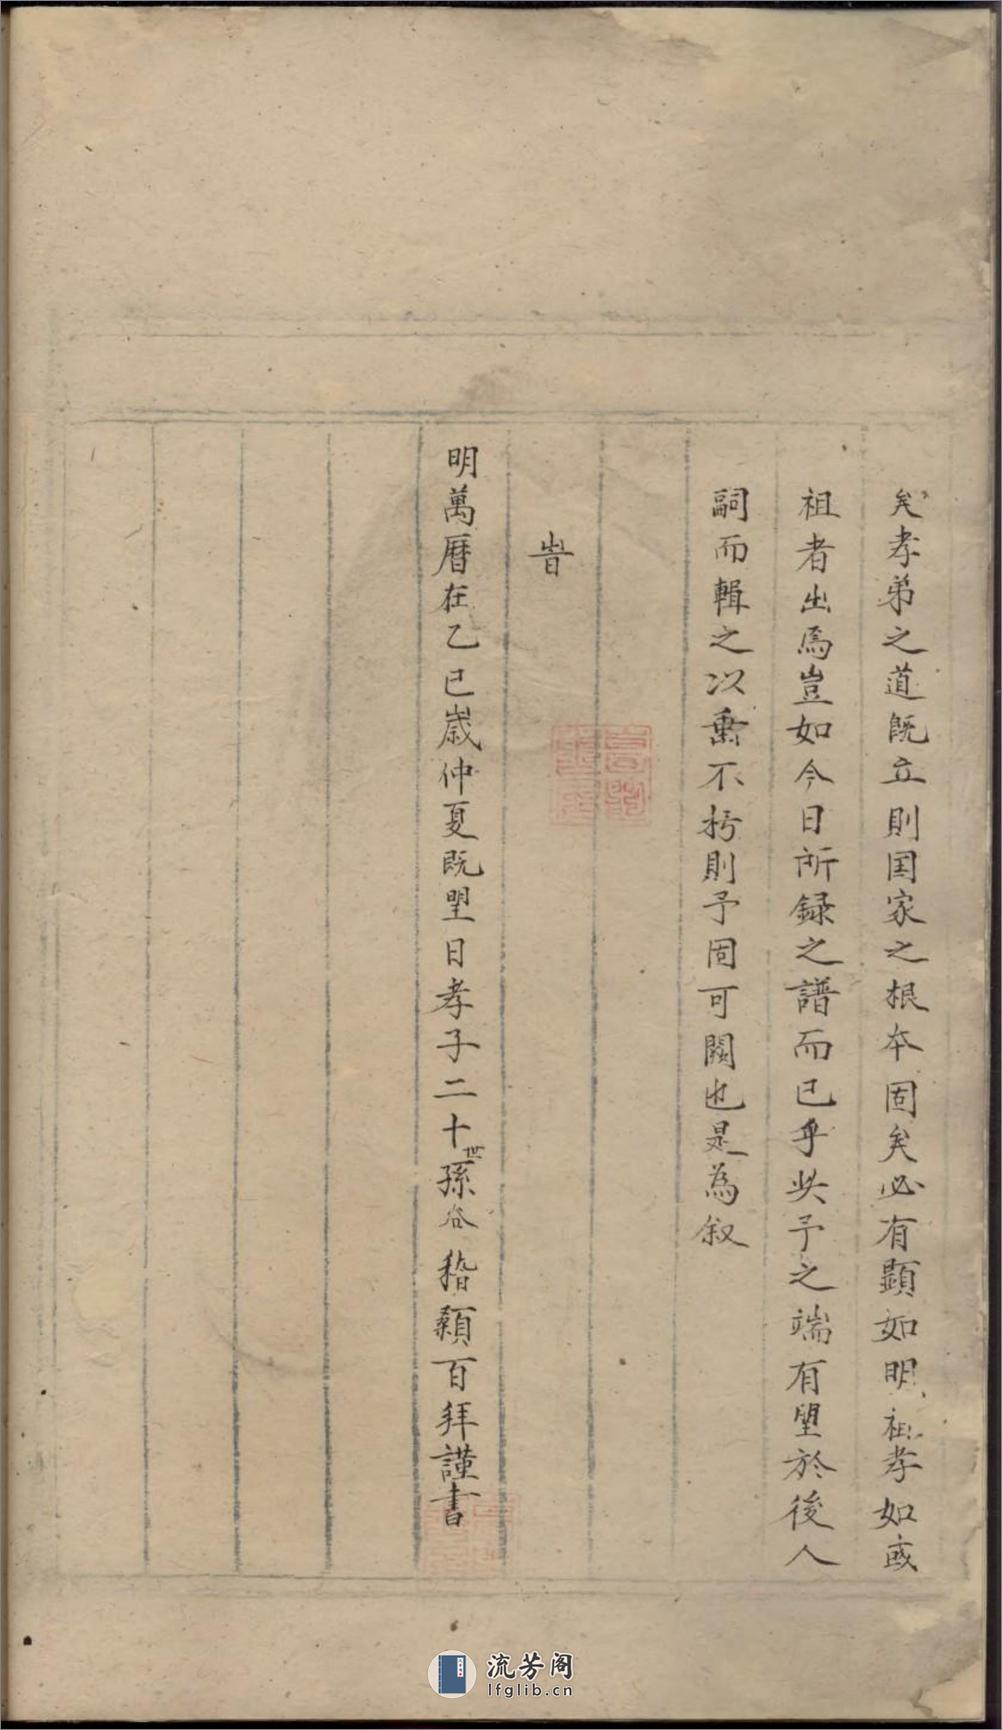 矣孝弟之道既立則国家之根本固矣必有顕如明祖孝如或
祖者出焉豈如今日所録之譜而已乎此予之端有朢於後人
嗣而輯之以垂不朽則予固可闕也是為叙
旹
明萬曆在乙巳歲仲夏既朢日孝子二十世孫谷稽顙百拜謹書
流芳阁
lfglib.cn